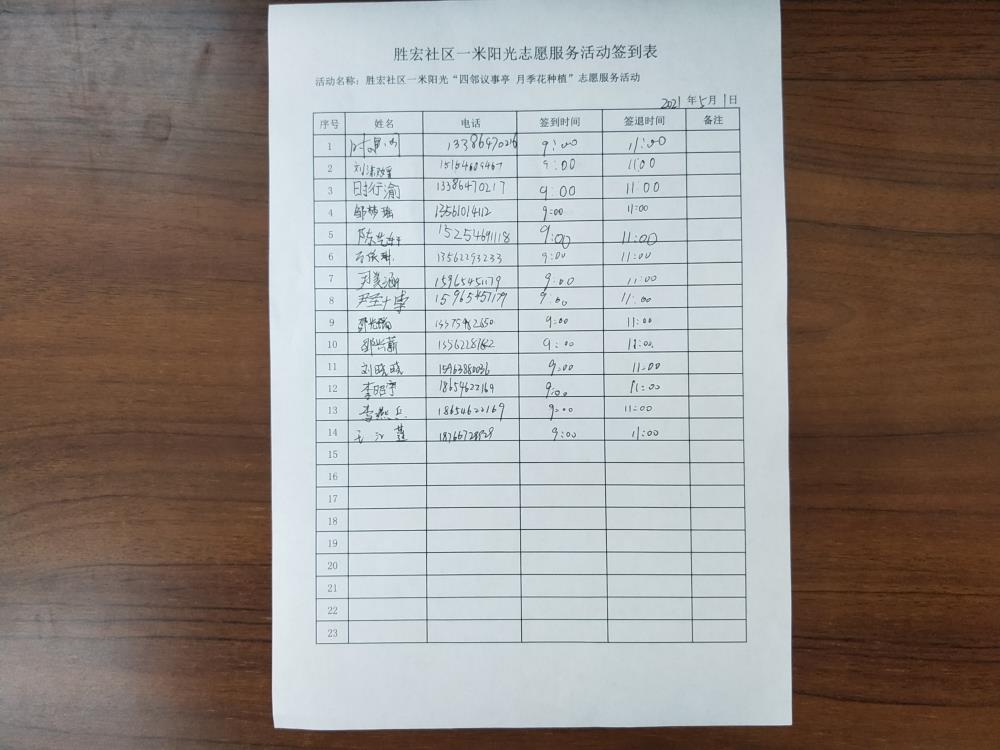 胜宏社区一米阳光志愿服务活动签到表
活动名称：胜宏社区一米阳光“四邻议事亭 月季花种植”志愿服务活动
2021 年 5 月 1 日
序号 姓名 电话 签到时间 签退时间 备注
1 13386470216 9:00 11:00
2 9:00 11:00
3 时行渝 13386470217 9:00 11:00
4 邹梦瑶 13561014112 9:00 11:00
5 15254691118 9:00 11:00
6 13562293233 9:00 11:00
7 15965451179 9:00 11:00
8 15965451179 9:00 11:00
9 9:00 11:00
10 9:00
11 刘晓晓 15963880036 9:00 11:00
12 李昭宇 18654622169 9:00 11:00
13 李燕兵 18654622169 9:00 11:00
14 9:00 11:00
15
16
17
18
19
20
21
22
23